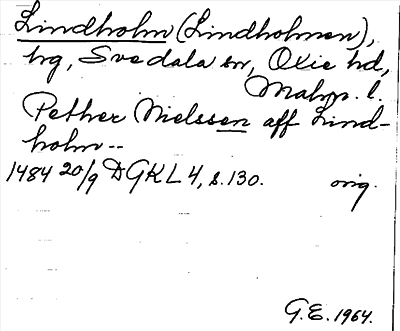 Lindholm (Lindholmen),
hg, Svedala sn, Oxie hd,
Malm. l.
Pether Nielssen aff Lind-
holm--
1484 20/9 DGKL 4, s. 130. orig.
G.E. 1964.